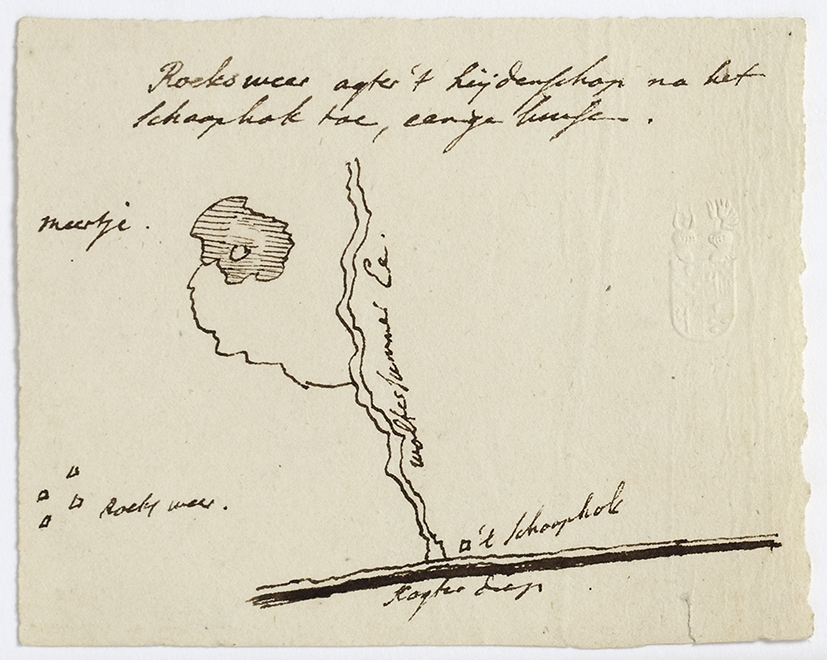 Roeksweer agter 't heijdenschap na het
Schaaphok toe, eenige huise.
meertje.
woltersummer Ee.
Roeks weer.
't Schaaphok
diep